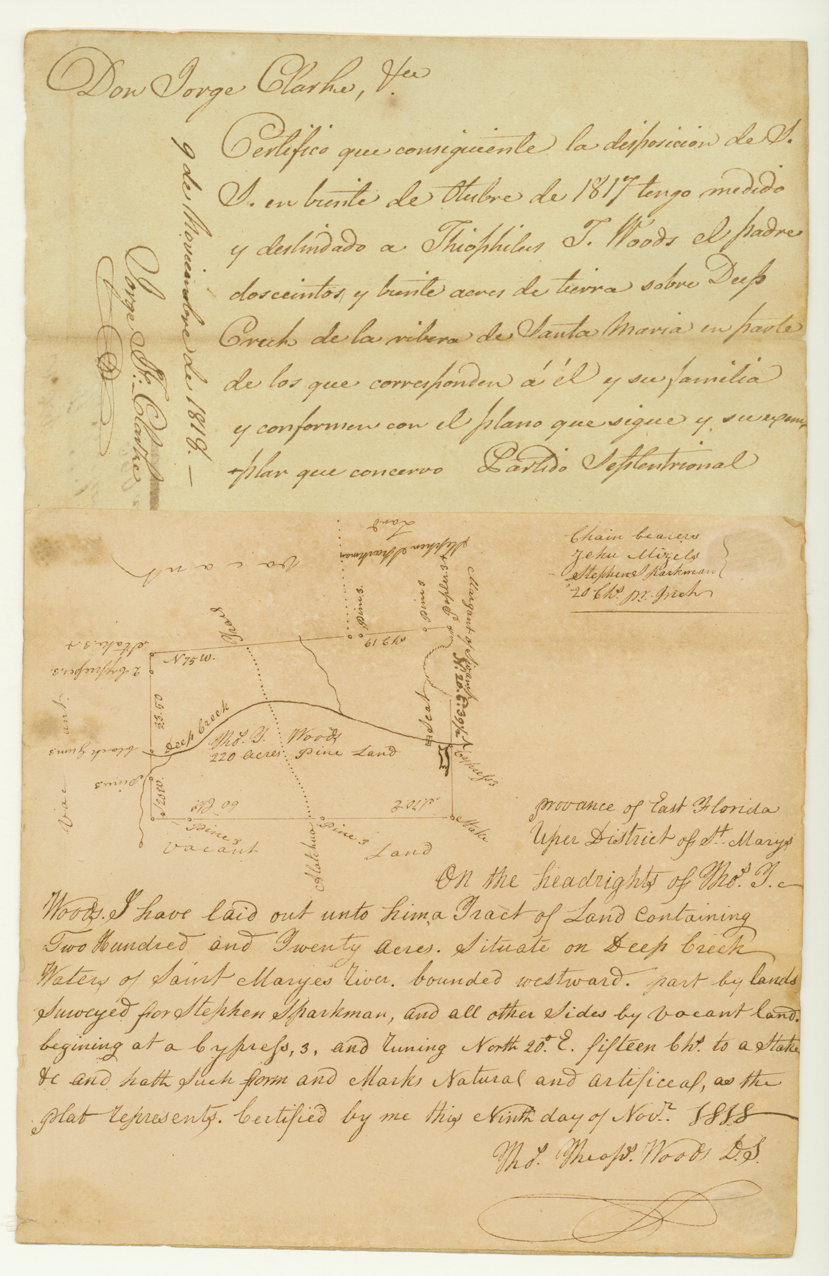 Don Jorge Clarke, &ee
Certifico que consiguiente la disposicion de S.
S. en beinte de Otubre de 1817 tengo medido
y deslindado a Thiophilus T. Woods el padre
dosceintos y beinte acres de tierra sobre Deep
Creek de la ribera de Santa Maria en parte
de los que corresponden á él y su familia
y conformen con el plano que sigue y su exem
plar que concervo Partido Septentrional
9 de Noviembre de 1818. —
Jorge J. F. Clarke
Chain bearers
Jehu Mizels
Stephen Sparkman
20 Chs. pr. Inch
Stephen Sparkman
Land
Vacant
Trail
Pine 3
Pine 3
Margant of Swamp
Stake 3 x
N 75 W.
2 Cypress 3
23.50
Deep Creek
Black Gums
Thos. T. Woods
220 acres Pine Land
Pine 3
60 Chs
Pine 3
Pine 3
S 70 E
Stake
Vacant Land
Alachua
Cypress
Vacant
Provance of East Florida
Uper District of St. Marys
On the headrights of Thos. T.
Woods. I have laid out unto him a Tract of Land Containing
Two Hundred and Twenty acres. Situate on Deep Creek
Waters of Saint Maryes River. bounded westward. part by lands
Surveyed for Stephen Sparkman, and all other Sides by vacant land.
begining at a Cypress, 3, and runing North 20d. E. fifteen Chs. to a Stake
&c and hath Such form and Marks Natural and artificeal, as the
plat represents. Certified by me this Ninth day of Novr. 1818
Thos. Theops. Woods D.S.